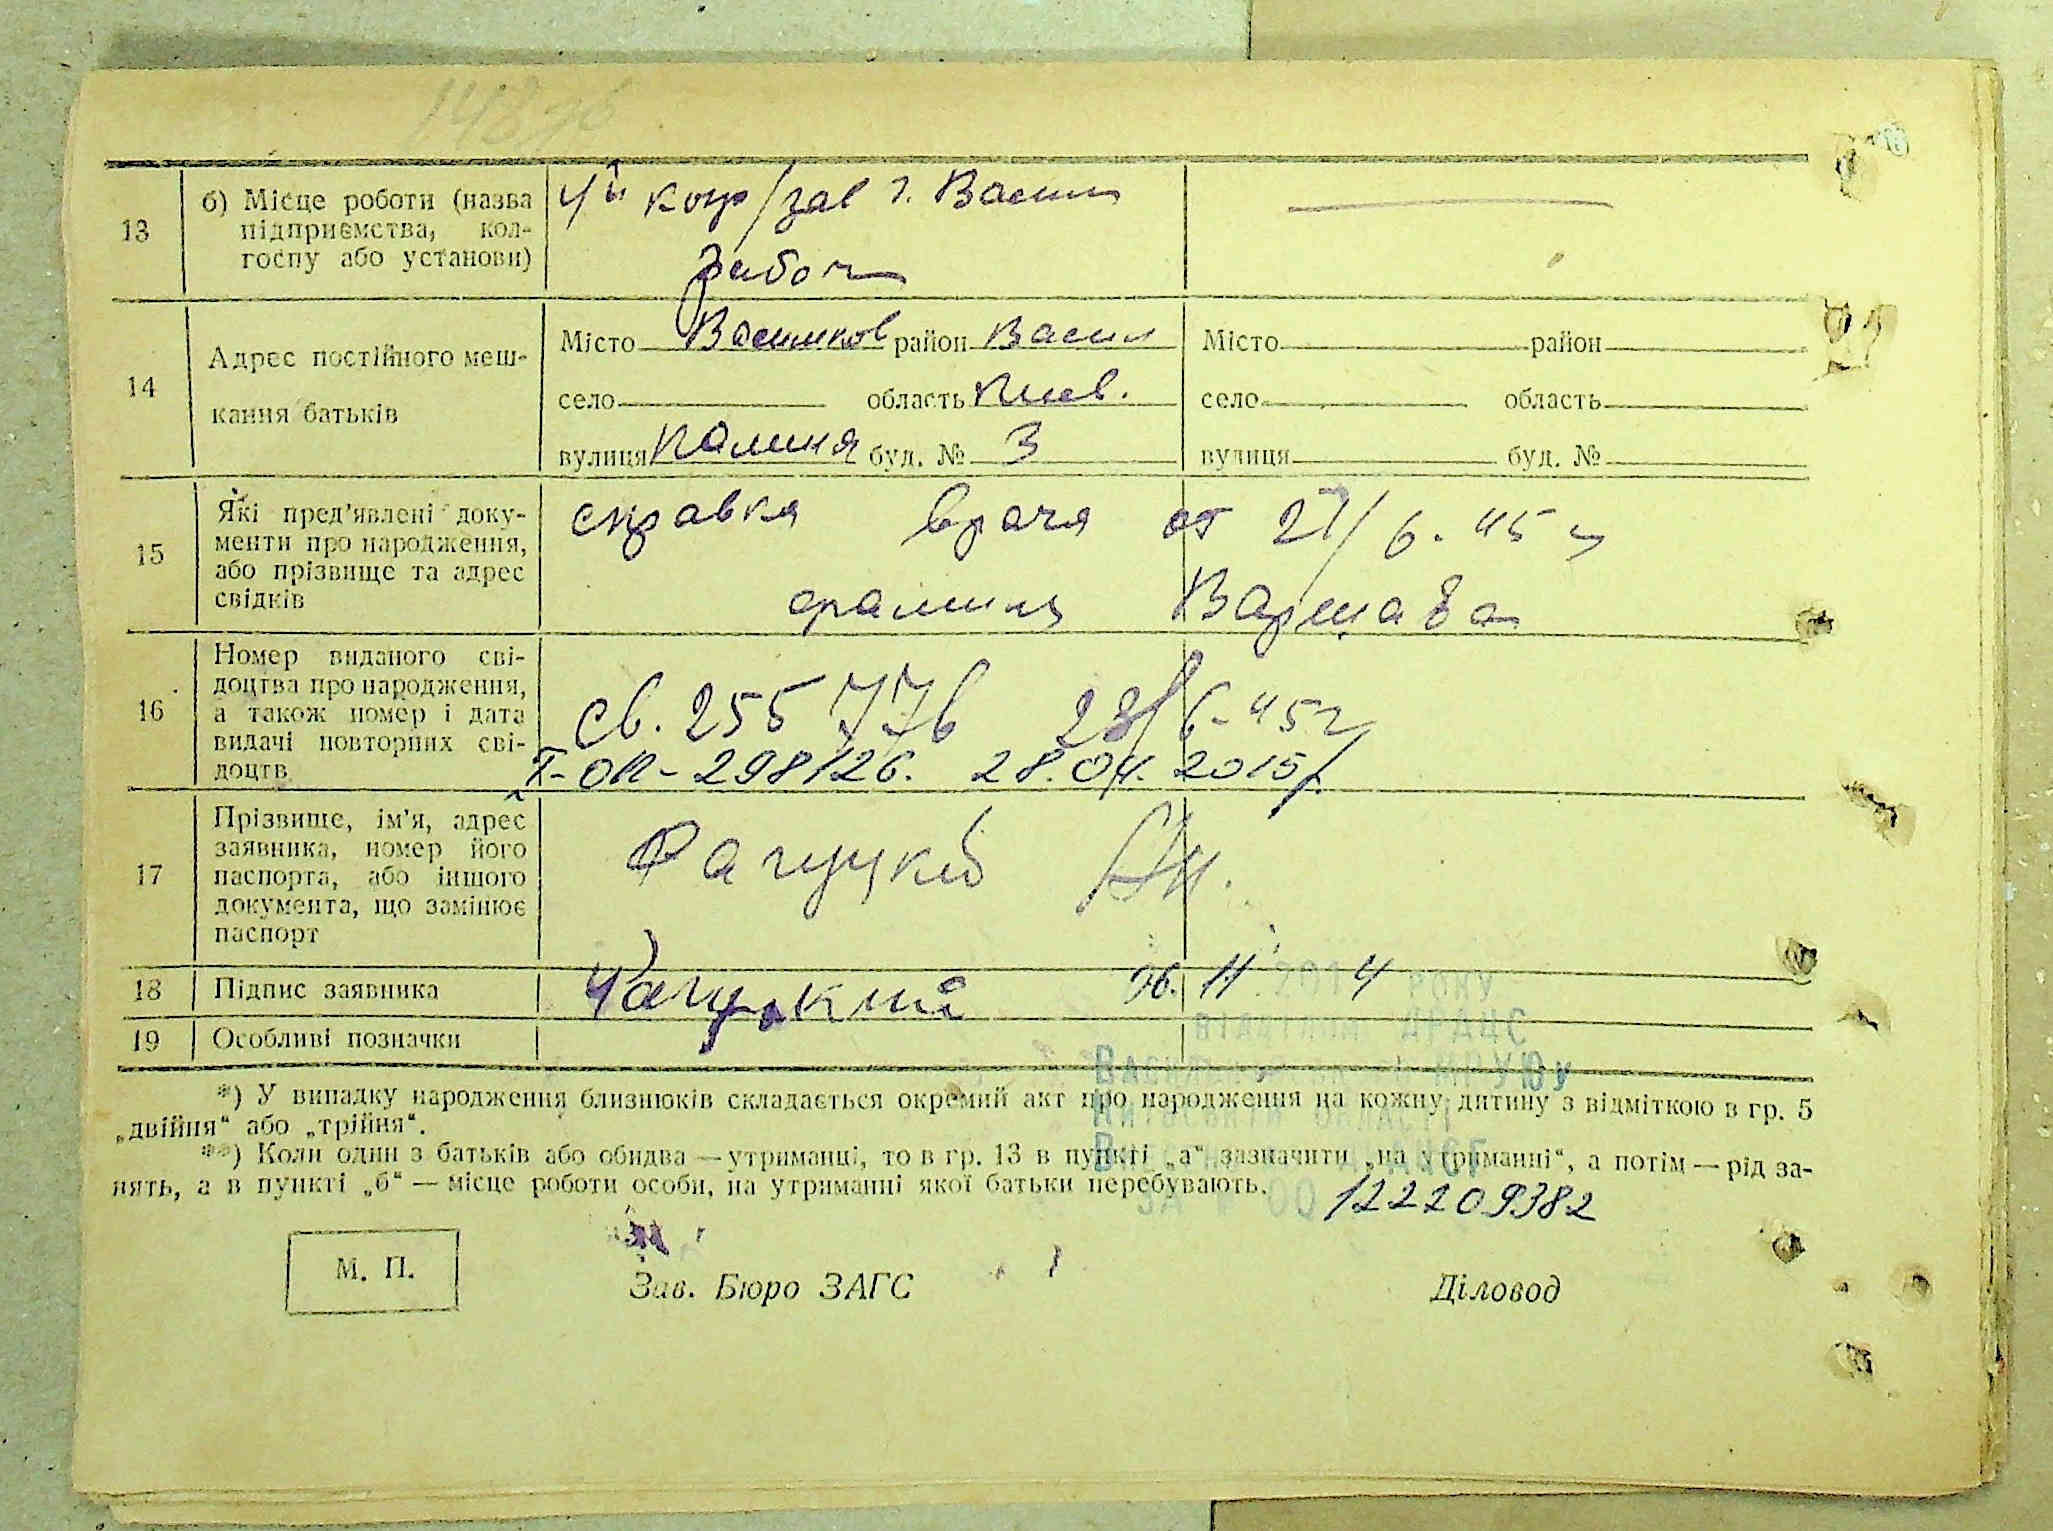 13
б) Місце роботи (назва
підприємства, кол-
госпу або установи)
г. Васил
рабоч
14
Адрес постійного меш-
кання батьків
Місто Васильков район Васил
село область Киев.
вулиця буд. № 3
Місто район
село область
вулиця буд. №
15
Які пред'явлені доку-
менти про народження,
або прізвище та адрес
свідків
справка врача от 27/6.45 г
16
Номер виданого сві-
доцтва про народження,
а також номер і дата
видачі повторних сві-
доцтв
св. 255 776 28/6-45г
І-ОК-298126. 28.04.2015р.
17
Прізвище, ім'я, адрес
заявника, номер його
паспорта, або іншого
документа, що замінює
паспорт
18
Підпис заявника
06. 11 201 4 року
19
Особливі позначки
*) У випадку народження близнюків складається окремий акт про народження на кожну дитину з відміткою в гр. 5
„двійня“ або „трійня“.
**) Коли один з батьків або обидва — утриманці, то в гр. 13 в пункті „а“ зазначити „на утриманні“, а потім — рід за-
нять, а в пункті „б“ — місце роботи особи, на утриманні якої батьки перебувають.
122209382
М. П.
Зав. Бюро ЗАГС
Діловод